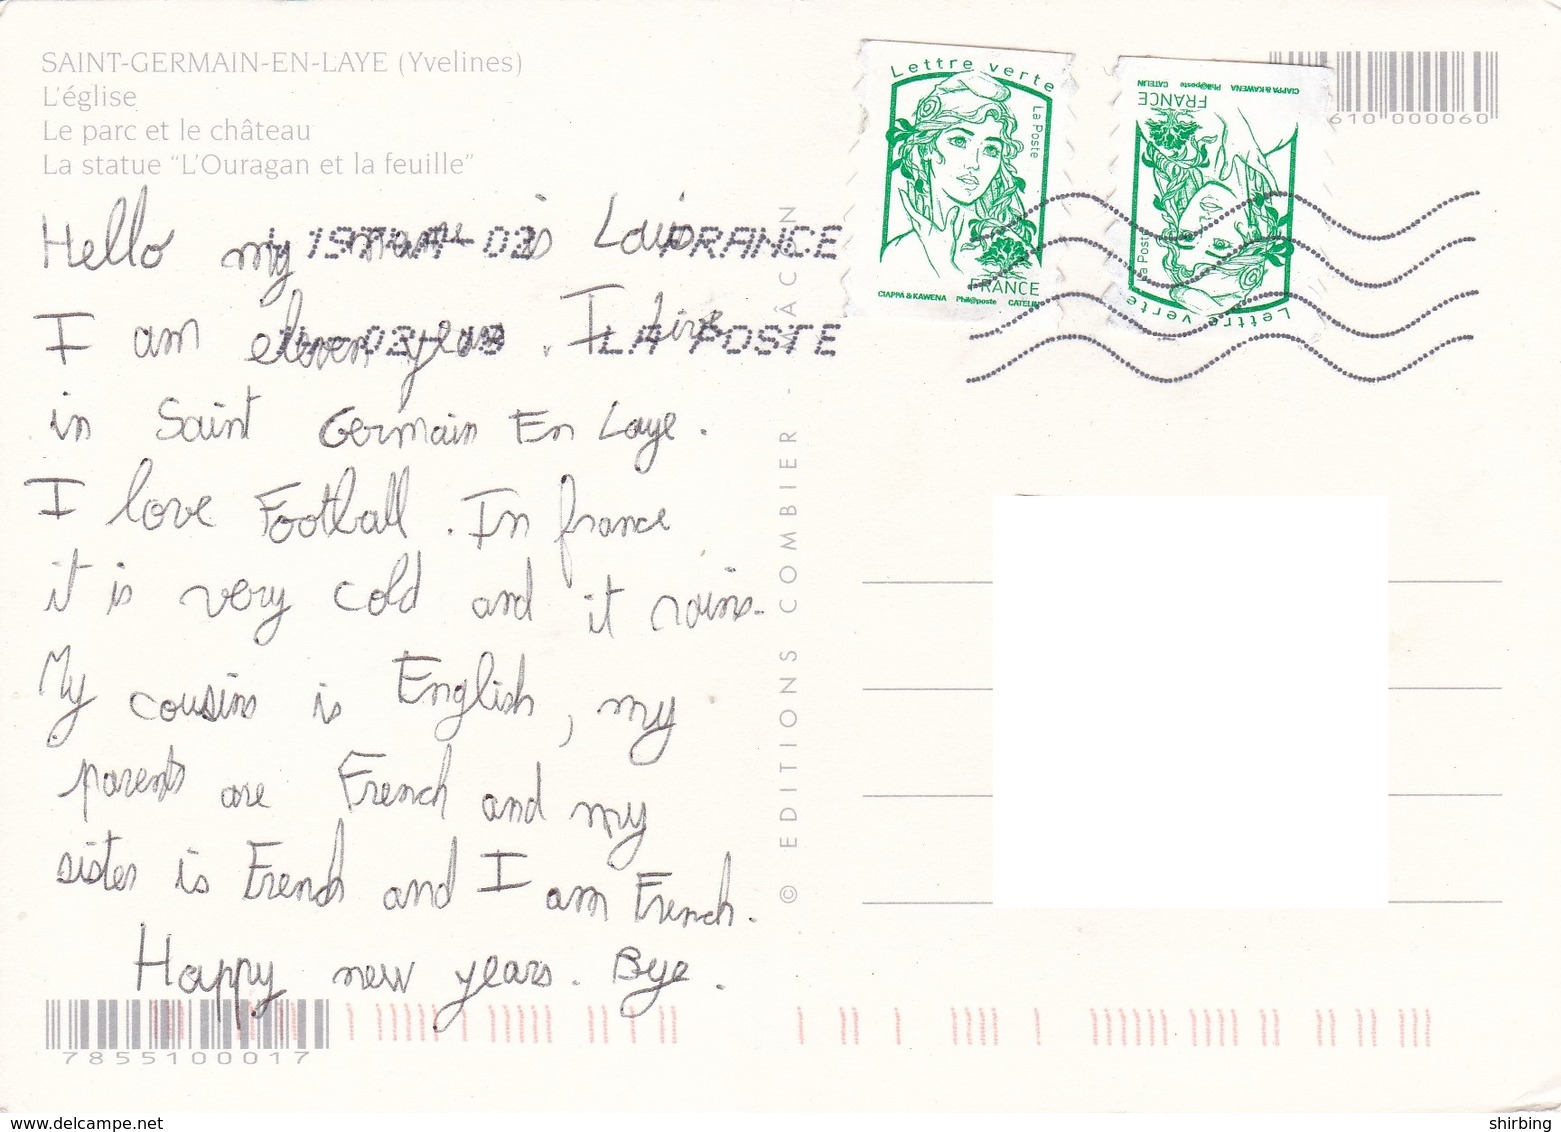 SAINT-GERMAIN-EN-LAYE (Yvelines)
L'église
Le parc et le château
La statue "L'Ouragan et la feuille"
Hello my name is Louis
I am eleven years. I live
in Saint Germain En Laye.
I love Football. In france
it is very cold and it rains.
My cousins is English, my
parents are French and my
sister is French and I am French.
Happy new years. Bye.
7855100017
© EDITIONS COMBIER - MÂCON
Lettre verte
La Poste
FRANCE
CIAPPA & KAWENA Phil@poste CATELIN
Lettre verte
La Poste
FRANCE
CIAPPA & KAWENA Phil@poste CATELIN
610 000060
FRANCE
LA POSTE
www.delcampe.net
shirbing